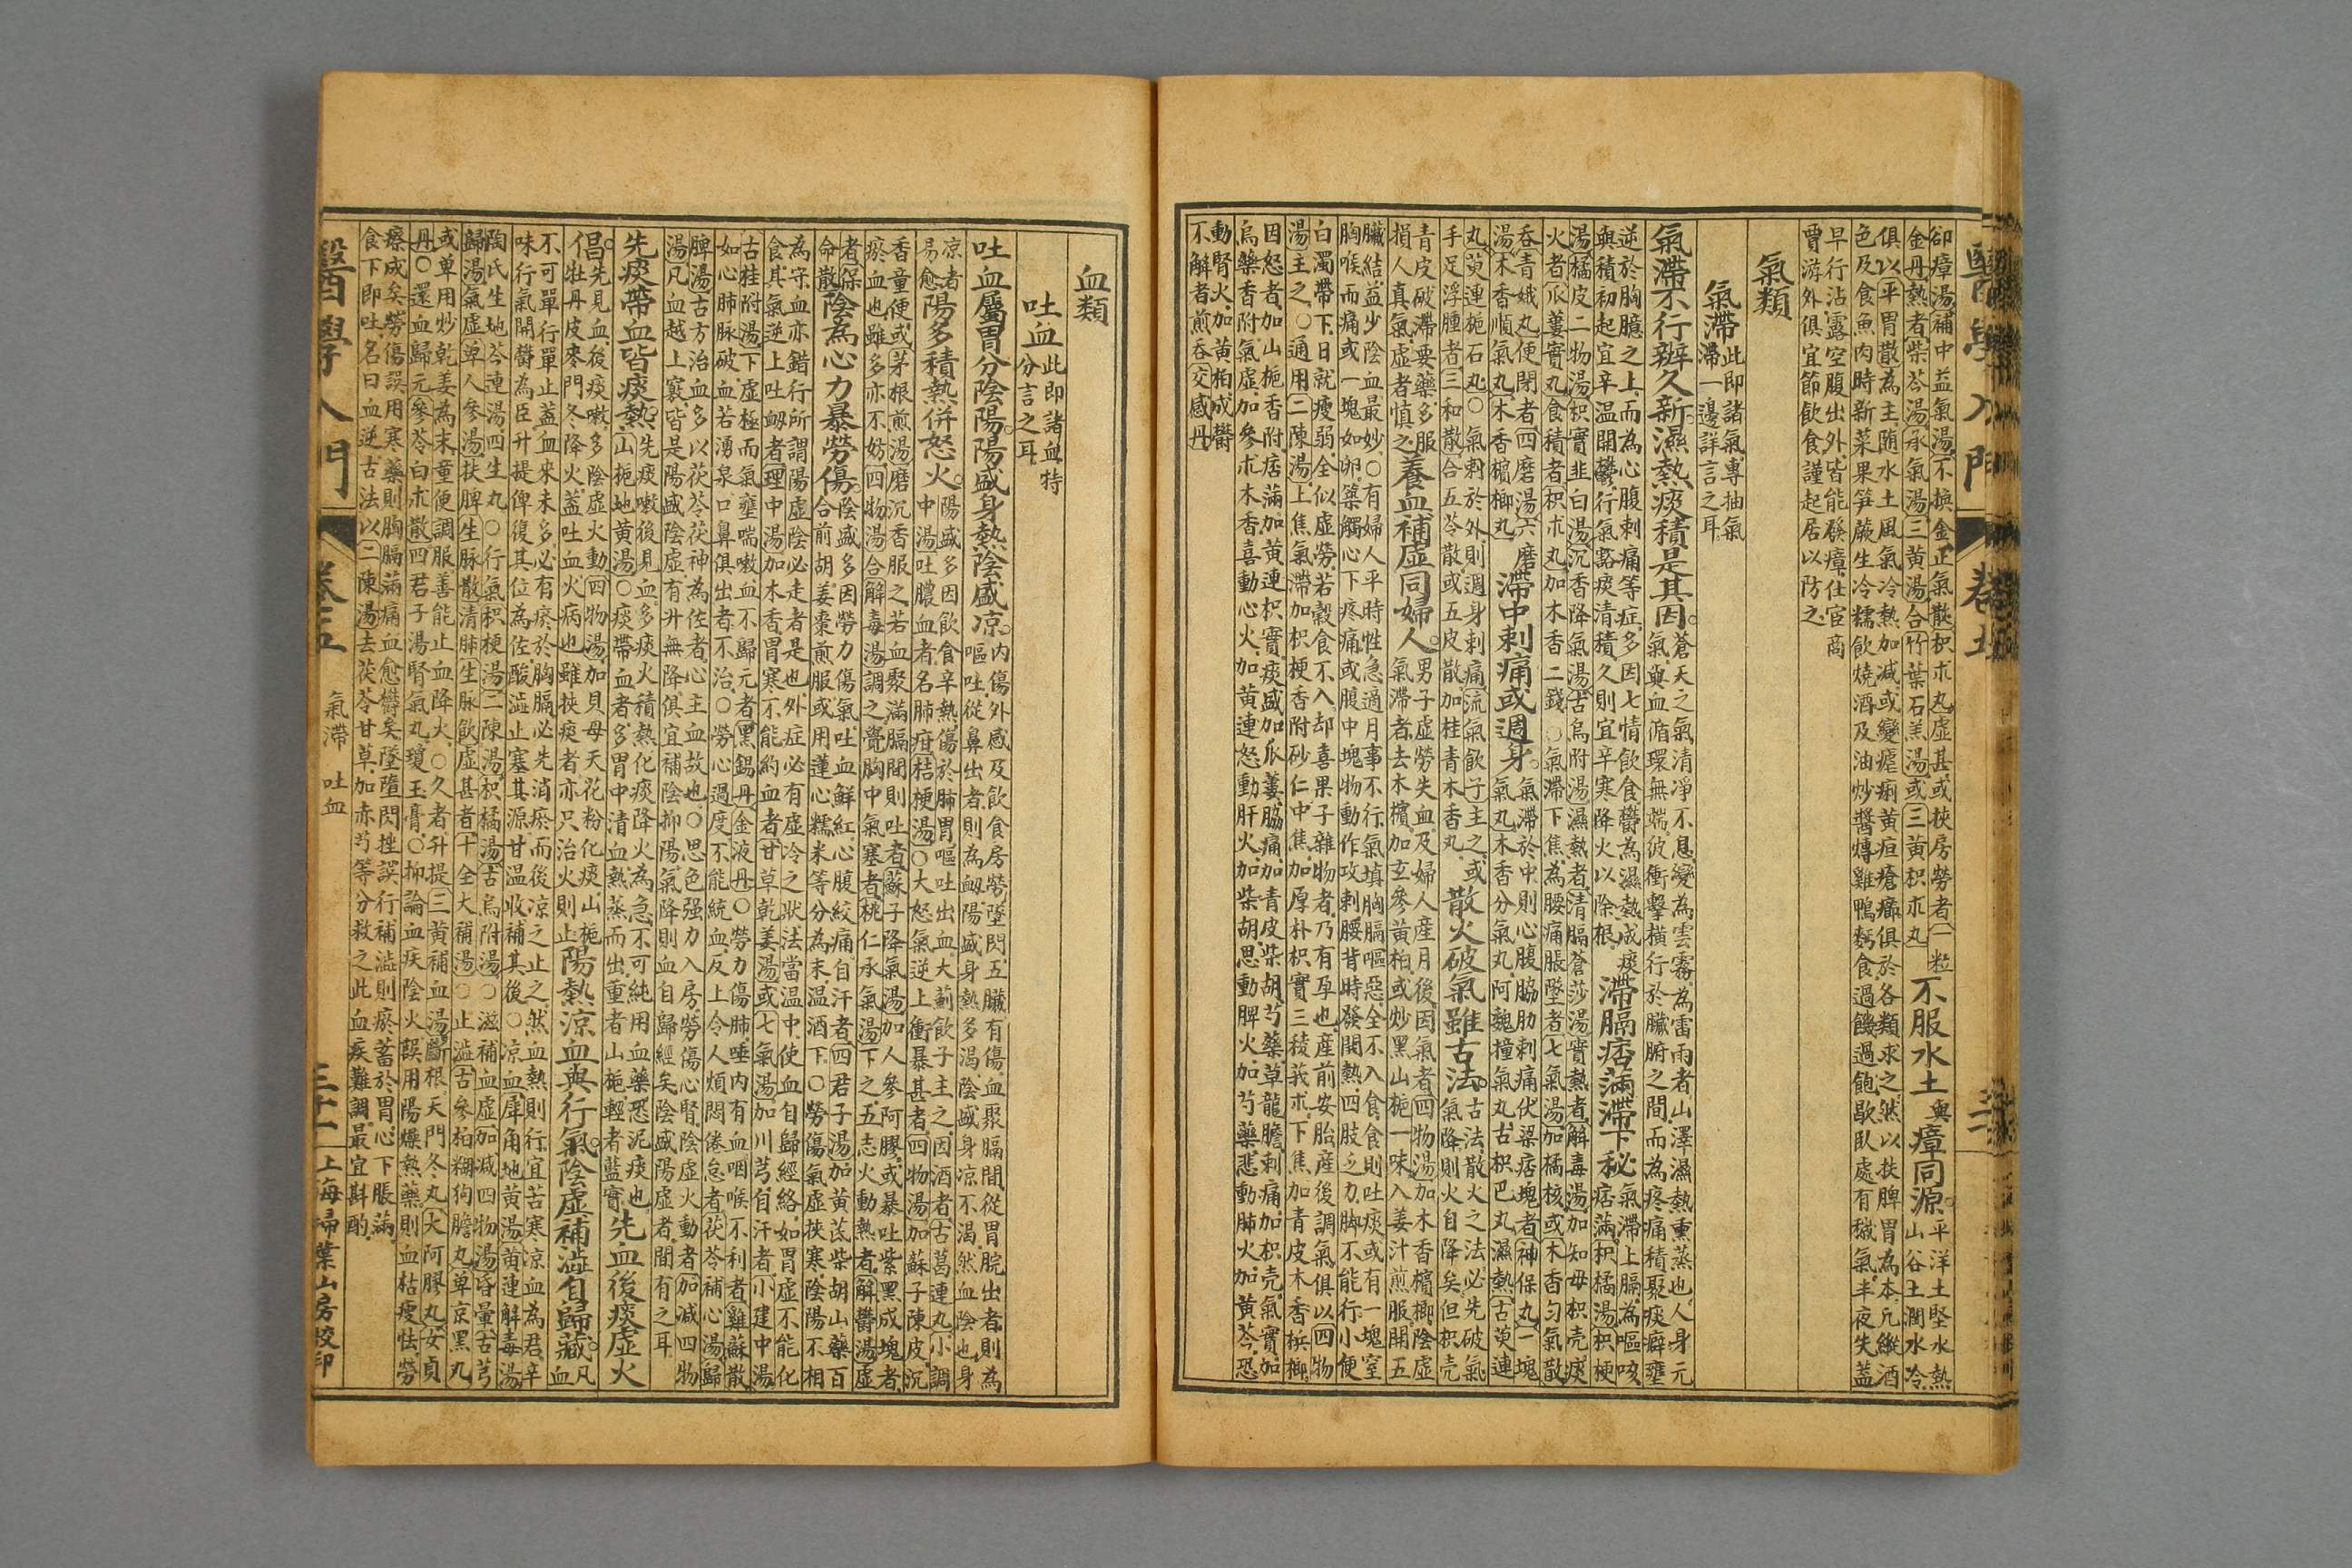 卻瘴湯補中益氣湯不換金正氣散枳朮丸虛甚或挾房勞者一粒
金丹熱者柴苓湯承氣湯三黃湯合竹葉石羔湯或三黃枳朮丸
不服水土與瘴同源
平洋土堅水熱
山谷土潤水冷
俱以平胃散為主隨水土風氣冷熱加減或變瘧痢黃疸瘡癤俱於各類求之然以扶脾胃為本凡縱酒
色及食魚肉時新菜果笋蕨生冷糯飲燒酒及油炒醬煿雞鴨麪食過饑過飽歇臥處有穢氣半夜失蓋
早行沾露空腹出外皆能發瘴仕宦商
賈游外俱宜節飲食謹起居以防之
氣類
氣滯
此即諸氣專抽氣
滯一邊詳言之耳
氣滯不行辨久新濕熱痰積是其因
蒼天之氣清淨不息變為雲霧為雷雨者山澤濕熱熏蒸也人身元
氣與血循環無端彼衝擊橫行於臟腑之間而為疼痛積聚痰癖壅
逆於胸臆之上而為心腹刺痛等症多因七情飲食鬱為濕熱成痰
與積初起宜辛溫開鬱行氣豁痰清積久則宜辛寒降火以除根
滯膈痞滿滯下秘
氣滯上膈為嘔咳
痞滿枳橘湯枳梗
湯橘皮二物湯枳實韭白湯沉香降氣湯古烏附湯濕熱者清膈蒼莎湯實熱者解毒湯加知母枳壳痰
火者瓜蔞實丸食積者枳朮丸加木香二錢○氣滯下焦為腰痛脹墜者七氣湯加橘核或木香勻氣散
吞青娥丸便閉者四磨湯六磨
湯木香順氣丸木香檳榔丸
滯中刺痛或週身
氣滯於中則心腹脇肋刺痛伏梁痞塊者神保丸一塊
氣丸木香分氣丸阿魏撞氣丸古枳巴丸濕熱古萸連
丸萸連梔石丸○氣刺於外則週身刺痛流氣飲子主之或
手足浮腫者三和散合五苓散或五皮散加桂青木香丸
散火破氣雖古法
古法散火之法必先破氣
氣降則火自降矣但枳壳
青皮破滯要藥多服
損人真氣虛者慎之
養血補虛同婦人
男子虛勞失血及婦人産月後因氣者四物湯加木香檳榔陰虛
氣滯者去木檳加玄參黃柏或炒黑山梔一味入姜汁煎服開五
臟結益少陰血最妙○有婦人平時性急適月事不行氣填胸膈嘔惡全不入食食則吐痰或有一塊窒
胸喉而痛或一塊如卵築觸心下疼痛或腹中塊物動作攻刺腰背時發開熱四肢乏力脚不能行小便
白濁帶下日就瘦弱全似虛勞若穀食不入却喜果子雜物者乃有孕也産前安胎産後調氣俱以四物
湯主之○通用二陳湯上焦氣滯加枳梗香附砂仁中焦加厚朴枳實三稜莪朮下焦加青皮木香檳榔
因怒者加山梔香附痞滿加黃連枳實痰盛加瓜蔞脇痛加青皮柴胡芍藥草龍膽刺痛加枳壳氣實加
烏藥香附氣虛加參朮木香喜動心火加黃連怒動肝火加柴胡思動脾火加芍藥悲動肺火加黃芩恐
動腎火加黃柏成鬱
不解者煎吞交感丹
血類
吐血
此即諸血特
分言之耳
吐血屬胃分陰陽陽盛身熱陰盛凉
內傷外感及飲食房勞墜閃五臟有傷血聚膈間從胃脘出者則為
嘔吐從鼻出者則為衄陽盛身熱多渴陰盛身凉不渴然血陰也身
凉者
易愈
陽多積熱併怒火
陽盛多因飲食辛熱傷於肺胃嘔吐出血大薊飲子主之因酒者古葛連丸小調
中湯吐膿血者名肺疳桔梗湯○大怒氣逆上衝暴甚者四物湯加蘇子陳皮沉
香童便或茅根煎湯磨沉香服之若血聚滿膈間則吐者蘇子降氣湯加人參阿膠或暴吐紫黑成塊者
瘀血也雖多亦不妨四物湯合解毒湯調之覺胸中氣塞者桃仁承氣湯下之五志火動熱者解鬱湯虛
者保
命散
陰為心力暴勞傷
陰盛多因勞力傷氣吐血鮮紅心腹絞痛自汗者四君子湯加黃芪柴胡山藥百
合前胡姜棗煎服或用蓮心糯米等分為末溫酒下○勞傷氣虛挾寒陰陽不相
為守血亦錯行所謂陽虛陰必走者是也外症必有虛冷之狀法當溫中使血自歸經絡如胃虛不能化
食其氣逆上吐衄者理中湯加木香胃寒不能約血者甘草乾姜湯或七氣湯加川芎自汗者小建中湯
古桂附湯下虛極而氣壅喘嗽血不歸元者黑錫丹金液丹○勞力傷肺唾內有血咽喉不利者雞蘇散
如心肺脉破血若湧泉口鼻俱出者不治○勞心過度不能統血反上令人煩悶倦怠者茯苓補心湯歸
脾湯古方治血多以茯苓茯神為佐者心主血故也○思色强力入房勞傷心腎陰虛火動者加減四物
湯凡血越上竅皆是陽盛陰虛有升無降俱宜補陰抑陽氣降則血自歸經矣陰盛陽虛者間有之耳
先痰帶血皆痰熱
先痰嗽後見血多痰火積熱化痰降火為急不可純用血藥恐泥痰也
山梔地黃湯○痰帶血者多胃中清血熱蒸而出重者山梔輕者藍實
先血後痰虛火
倡
先見血後痰嗽多陰虛火動四物湯加貝母天花粉化痰山梔
牡丹皮麥門冬降火蓋吐血火病也雖挾痰者亦只治火則止
陽熱涼血與行氣陰虛補澁自歸藏
凡
血
不可單行單止蓋血來未多必有瘀於胸膈必先消瘀而後凉之止之然血熱則行宜苦寒涼血為君辛
味行氣開鬱為臣升提俾復其位為佐酸澁止塞其源甘溫收補其後○凉血犀角地黃湯黃連解毒湯
陶氏生地芩連湯四生丸○行氣枳梗湯二陳湯枳橘湯古烏附湯○滋補血虛加減四物湯昏暈古芎
歸湯氣虛單人參湯扶脾生脉散清肺生脉飲虛甚者十全大補湯○止澁古參柏糊狗膽丸單京黑丸
或單用炒乾姜為末童便調服善能止血降火○久者升提三黃補血湯斷根天門冬丸大阿膠丸女貞
丹○還血歸元參苓白朮散四君子湯腎氣丸瓊玉膏○抑論血疾陰火誤用陽燥熱藥則血枯瘦怯勞
瘵成矣勞傷誤用寒藥則胸膈滿痛血愈鬱矣墜墮閃挫誤行補澁則瘀蓄於胃心下脹滿
食下即吐名曰血逆古法以二陳湯去茯苓甘草加赤芍等分救之此血疾難調最宜斟酌
醫學入門
卷五
氣滯 吐血
三十一
上海掃葉山房校印